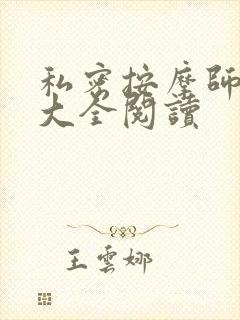 私密按摩師
大全閱讀
王雲娜